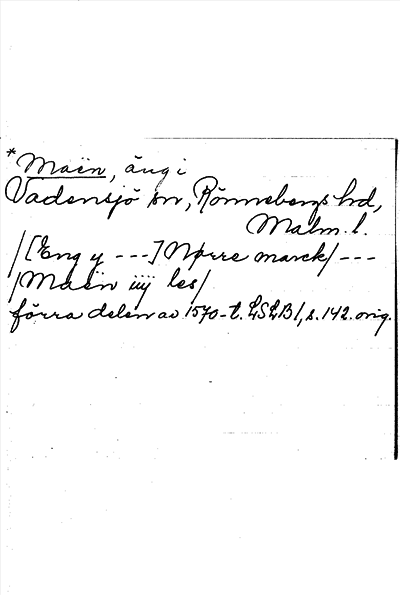 * Maën, äng i
Vadensjö sn, Rönnebergs hd,
Malm. l.
/[Eng y ---] Nørre marck/ ---
/Maën iiij les/
förra delen av 1570-t. LSLB1, s. 142. orig.